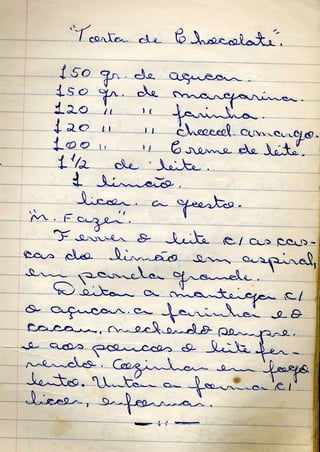 "Torta de Chocolate".
150 gr. de açucar.
150 gr. de margarina.
120 " " farinha.
120 " " chocol. amargo.
100 " " Creme de leite.
1 1/2 de leite.
1 limão.
licor a gosto.
"M. Fazer".
Ferver o leite c/ as cas-
cas do limão em aspiral,
em panela grande.
Deitar a manteiga c/
o açucar. a farinha e o
cacau, mechendo sempre.
e aos poucos o leite fer-
vendo. Cozinhar em fogo
lento. Untar a forma c/
licor, enformar.